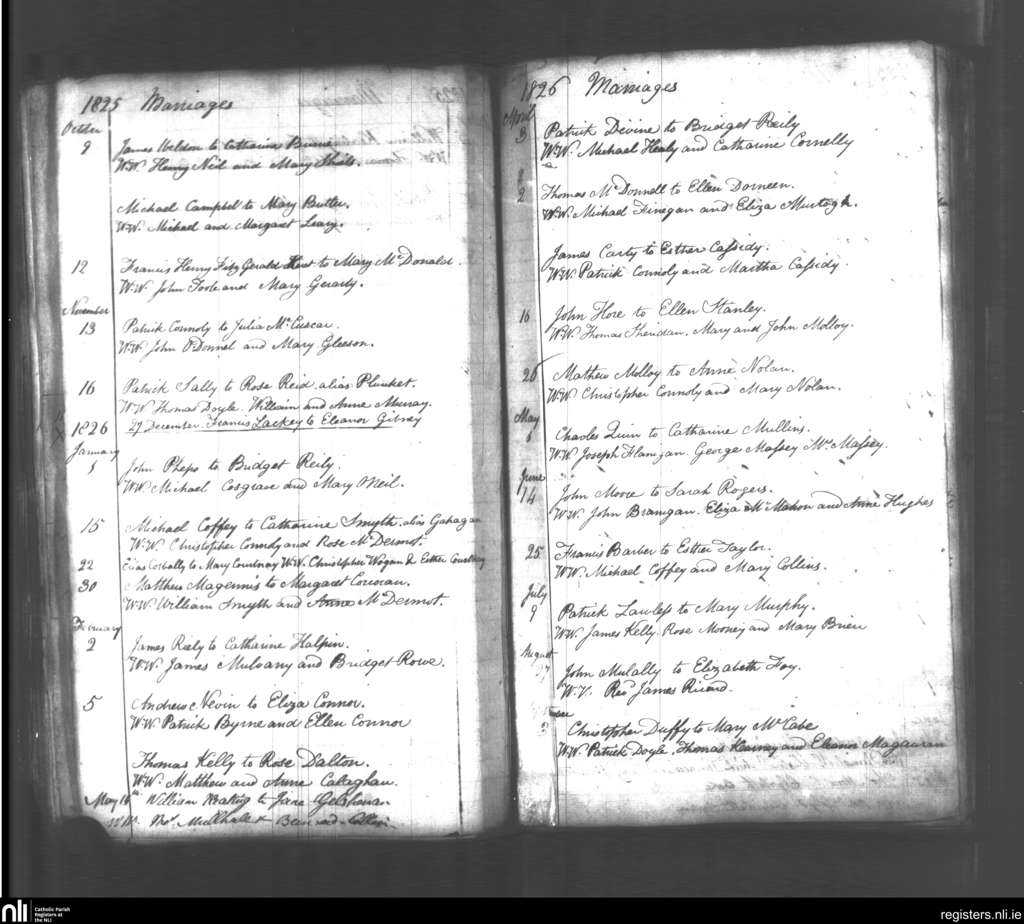 1825 Marriages
October
9 James Weldon to Catharine Burne
W.W. Henry Neil and Mary Shils.
Michael Campbel to Mary Butler.
W.W. Michael and Margaret Leary.
12 Francis Henry Fitz Gerald to Mary McDonald.
W.W. John Toole and Mary Gerarty.
November
13 Patrick Connoly to Julia McCuscar.
W.W. John O'Donnel and Mary Gleeson.
16 Patrick Lally to Rose Reid alias Plunket.
W.W. Thomas Doyle. William and Anne Murray.
1826 29 December Francis Lackey to Eleanor Gibney
January
1 John Pheps to Bridget Reily.
W.W. Michael Cosgrave and Mary Neil.
15 Michael Coffey to Catharine Smyth. alias Gahagan
W.W. Christopher Connoly and Rose McDermot.
22 Elias Corbally to Mary Courtnay W.W. Christopher Wogan & Esther Courtnay
30 Matthew Magennis to Margaret Corcoran.
W.W. William Smyth and Anne McDermot.
February
2 James Riely to Catharine Halpin.
W.W. James Mulvany and Bridget Rowe.
5 Andrew Nevin to Eliza Connor.
W.W. Patrick Byrne and Ellen Connor
Thomas Kelly to Rose Dalton.
W.W. Matthew and Anne Calaghan.
May 16th William Keating to Jane
W.W. Thos. Mulhall & Bernard
1826 Marriages
April
3 Patrick Divine to Bridget Reily
W.W. Michael Healy and Catharine Connelly
2 Thomas McDonnell to Ellen Dorneen.
W.W. Michael Finegan and Eliza Murtagh.
James Carty to Esther Cassidy.
W.W. Patrick Connoly and Martha Cassidy.
16 John Hore to Ellen Stanley.
W.W. Thomas Sheridan. Mary and John Molloy.
26 Mathew Molloy to Anne Nolan.
W.W. Christopher Connoly and Mary Nolan.
May
1 Charles Quin to Catharine Mullins.
W.W. Joseph Flanigan. George Massey Mrs Massey.
June
14 John Moore to Sarah Rogers.
W.W. John Branigan. Eliza McMahon and Anne Hughes
25 Francis Barber to Esther Taylor.
W.W. Michael Coffey and Mary Collins.
July
9 Patrick Lawless to Mary Murphy.
W.W. James Kelly. Rose Mooney and Mary Brien
August
7 John Mulally to Elizabeth Foy.
W.V. Revd James Ricard.
3 Christopher Duffy to Mary McCabe
W.W. Patrick Doyle. Thomas Kearney and Eleanor Magauran
nli
Catholic Parish
Registers at
the NLI
registers.nli.ie